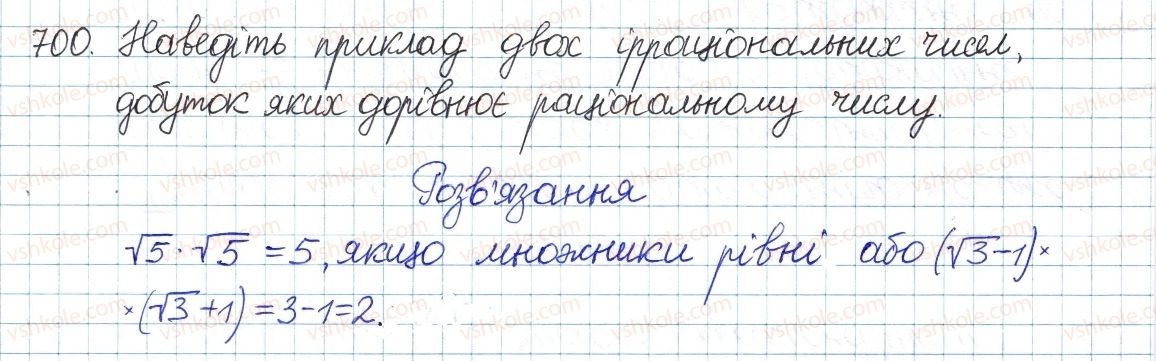 700. Наведіть приклад двох ірраціональних чисел,
добуток яких дорівнює раціональному числу.
Розв'язання
√5 · √5 = 5, якщо множники рівні або (√3-1)×
×(√3+1)=3-1=2.